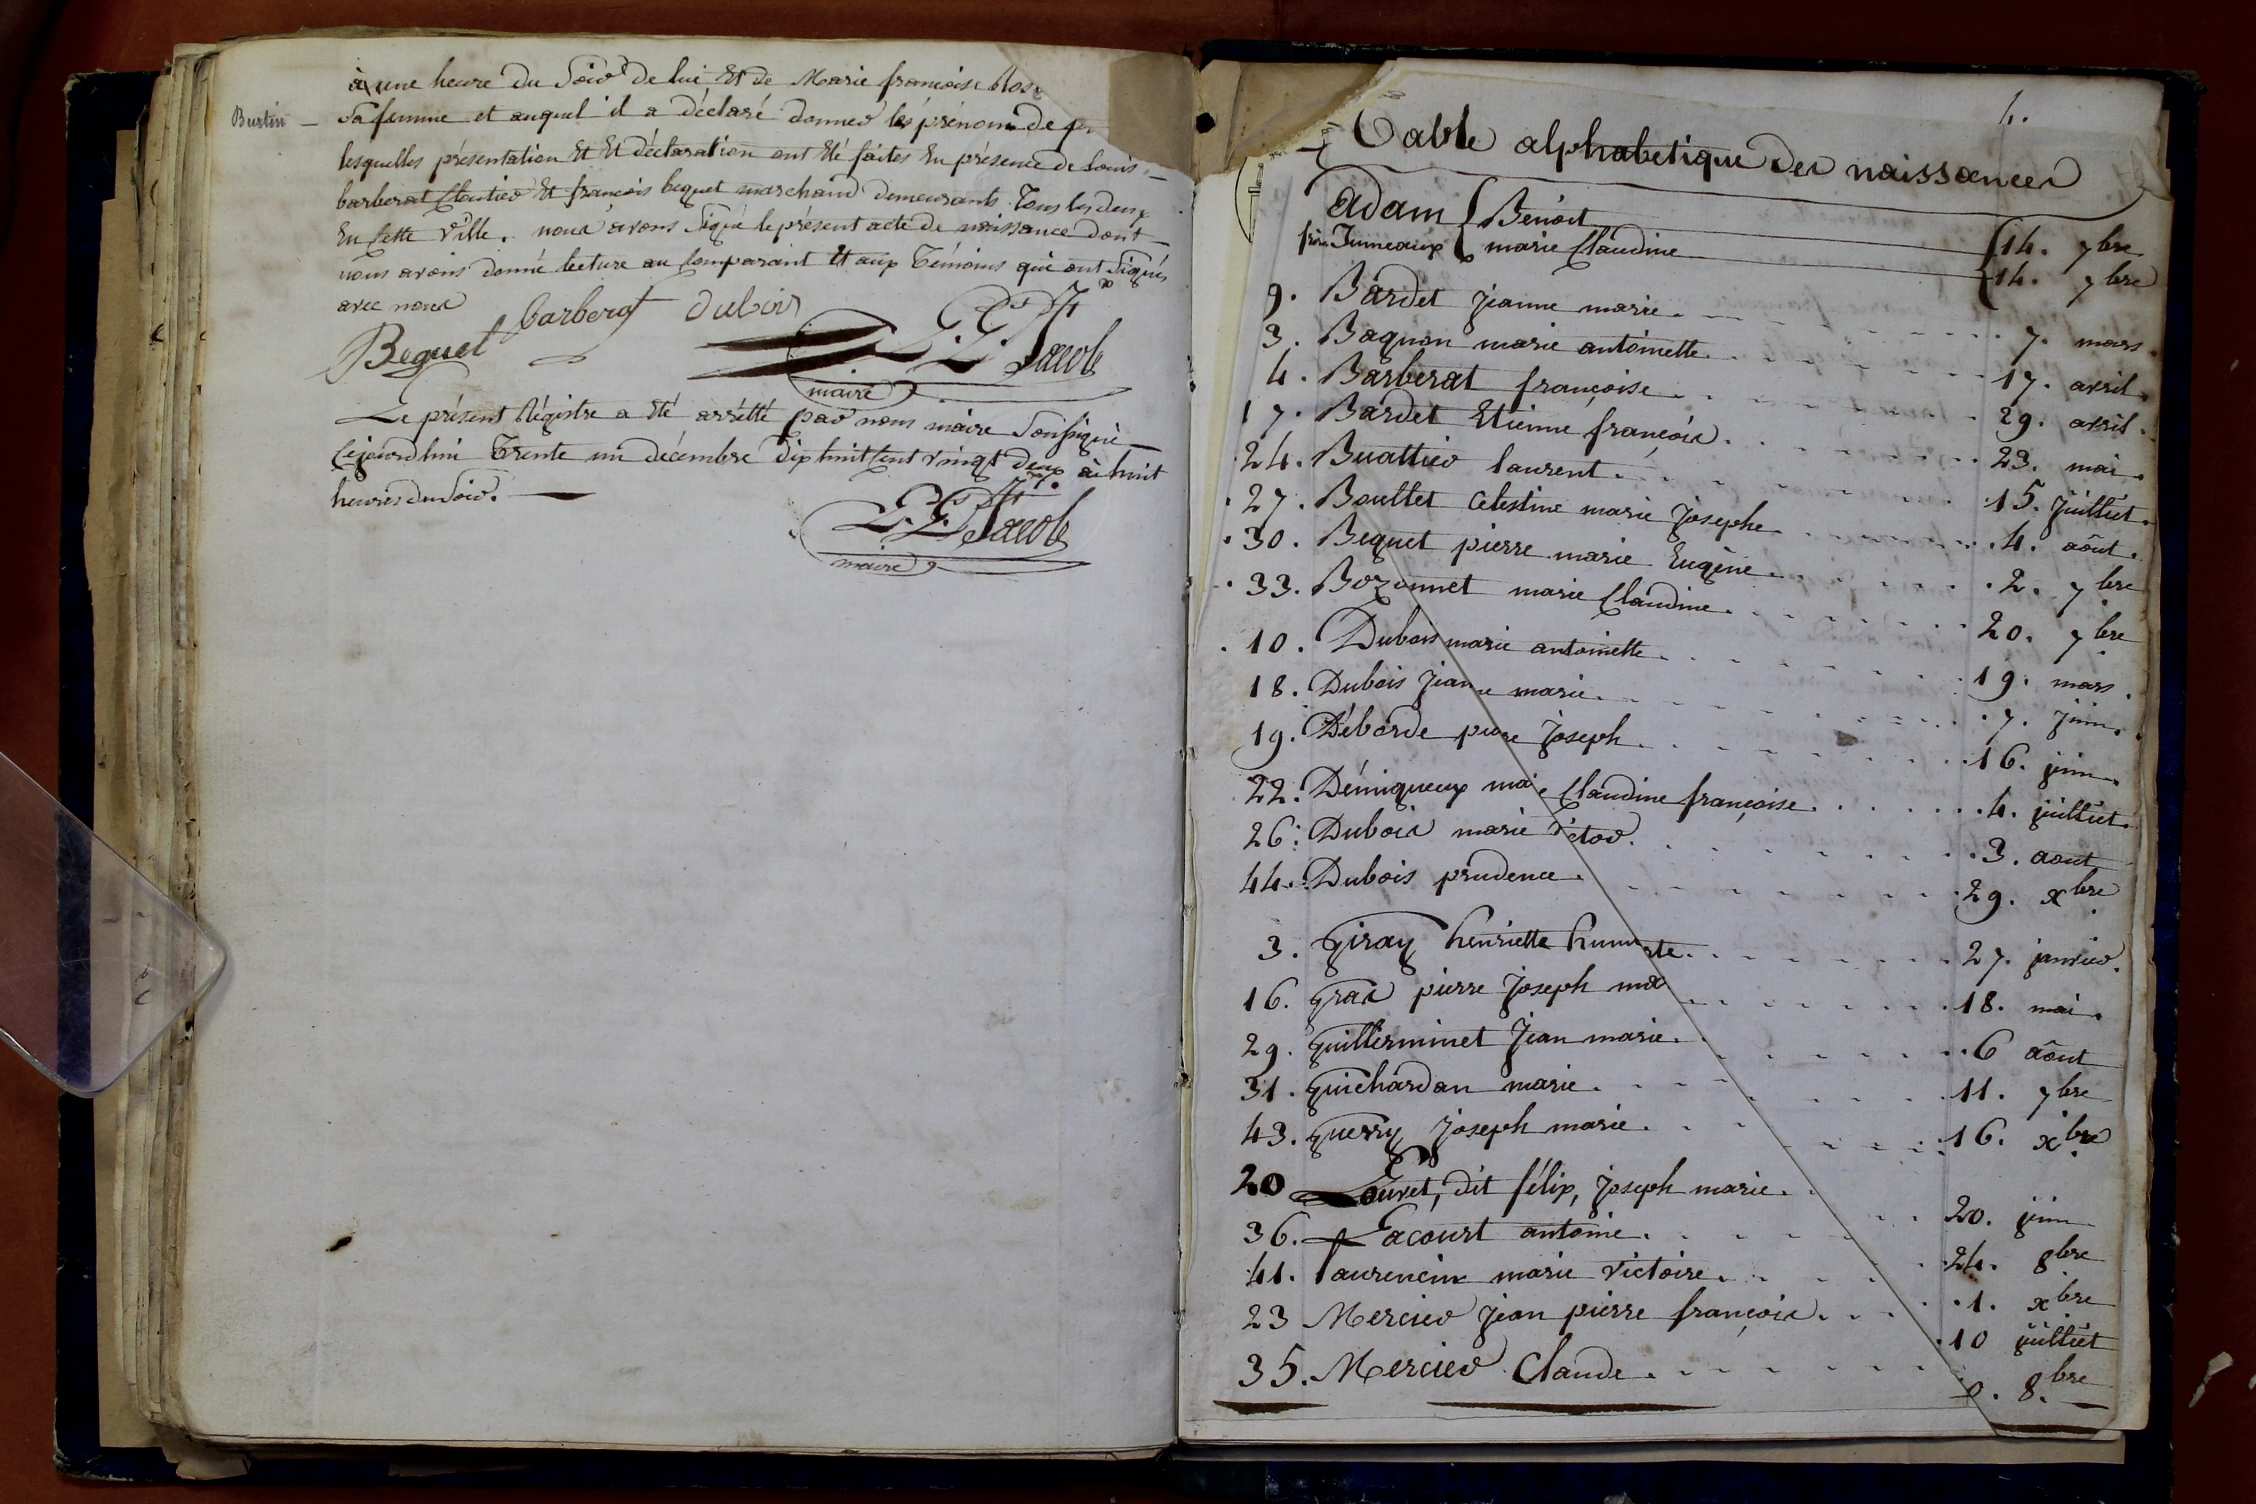 à une heure du Soir de lui Et de Marie françoise
Burtin
Sa femme et auquel il a déclaré donner les prénoms de
lesquelles présentation Et Et déclaration ont Eté faites En présence de Louis
barberat Cloutier Et françois bequet marchand demeurants Tous les deux
En Cette Ville. nous avons Signé le présent acte de naissance dont
nous avons donné lecture au Comparant Et aux Témoins qui ont Signés
avec nous
Bequet barberat dubois Jacob
maire
Le présent Régistre a Eté arrétté par nous maire Soussigné
Cejourdhui Trente un décembre dix huit Cent vingt deux à huit
heures du Soir.
Jacob
maire
Table alphabetique des naissances
Adam { Benoit { 14. 7bre
Jumeaux marie Claudine 14. 7bre
9. Bardet jeanne marie 7. mars
3. Bagnon marie antoinette 17. avril.
4. Barberat françoise 29. avril.
17. Bardet Etienne françois 23. mai
24. Buattier laurent 15. juillet.
27. Boullet Celestine marie josephe 4. aôut.
30. Bequet pierre marie Eugène 2. 7bre
33. Bozonnet marie Claudine 20. 7bre
10. Dubois marie antoinette 19. mars.
18. Dubois jeanne marie 7. juin.
19. Déborde pierre joseph 16. juin.
22. Démiqueux Claudine françoise 4. juillet.
26. Dubois marie Victor 3. aout
44. Dubois prudence 29. xbre
3. Giray henriette 27. janvier.
16. Gras pierre joseph 18. mai.
29. Guillerminet jean marie 6 aôut
31. Guichardan marie 11. 7bre
43. Guerry joseph marie 16. xbre
20 Louvet, dit félix, joseph marie 20. juin
36. Lacourt antoine 24. 8bre
41. laurencin marie Victoire 1. xbre
23 Mercier jean pierre françois 10 juillet
35. Mercier Claude 8bre